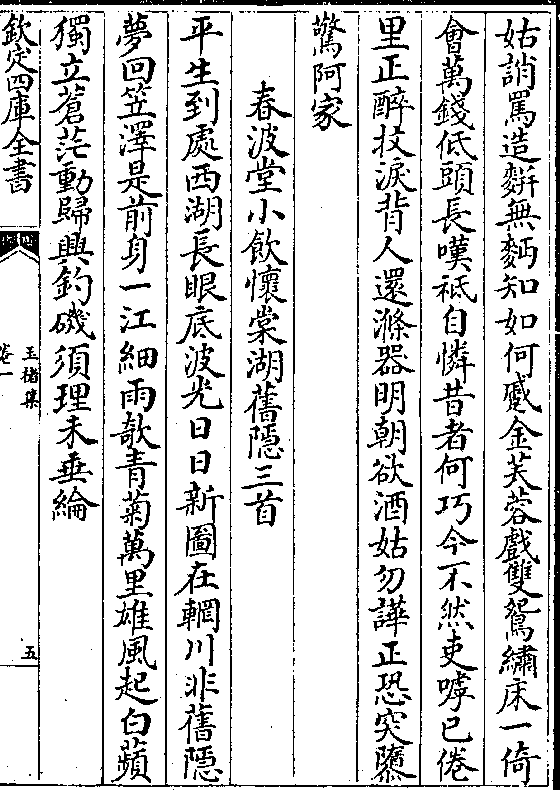 姑誚罵造麰無麪知如何蹙金芙蓉戲雙鴛繡床一倚
會萬錢低頭長嘆祗自憐昔者何巧今不然吏嘑已倦
里正醉抆淚背人還滌器明朝欲酒姑勿譁正恐突隳
驚阿家
春波堂小飲懷棠湖舊隱三首
平生到處西湖長眼底波光日日新圖在輞川非舊隱
夢回笠澤是前身一江細雨欹青蒻萬里雄風起白蘋
獨立蒼茫動歸興釣磯須理未垂綸
欽定四庫全書
玉楮集
卷一
五